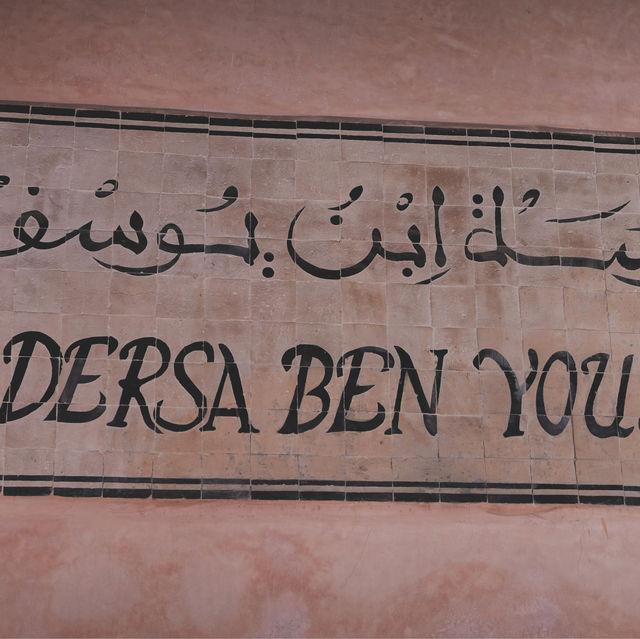 ـسَة اِبْنُ يُوسُف
DERSA BEN YOU